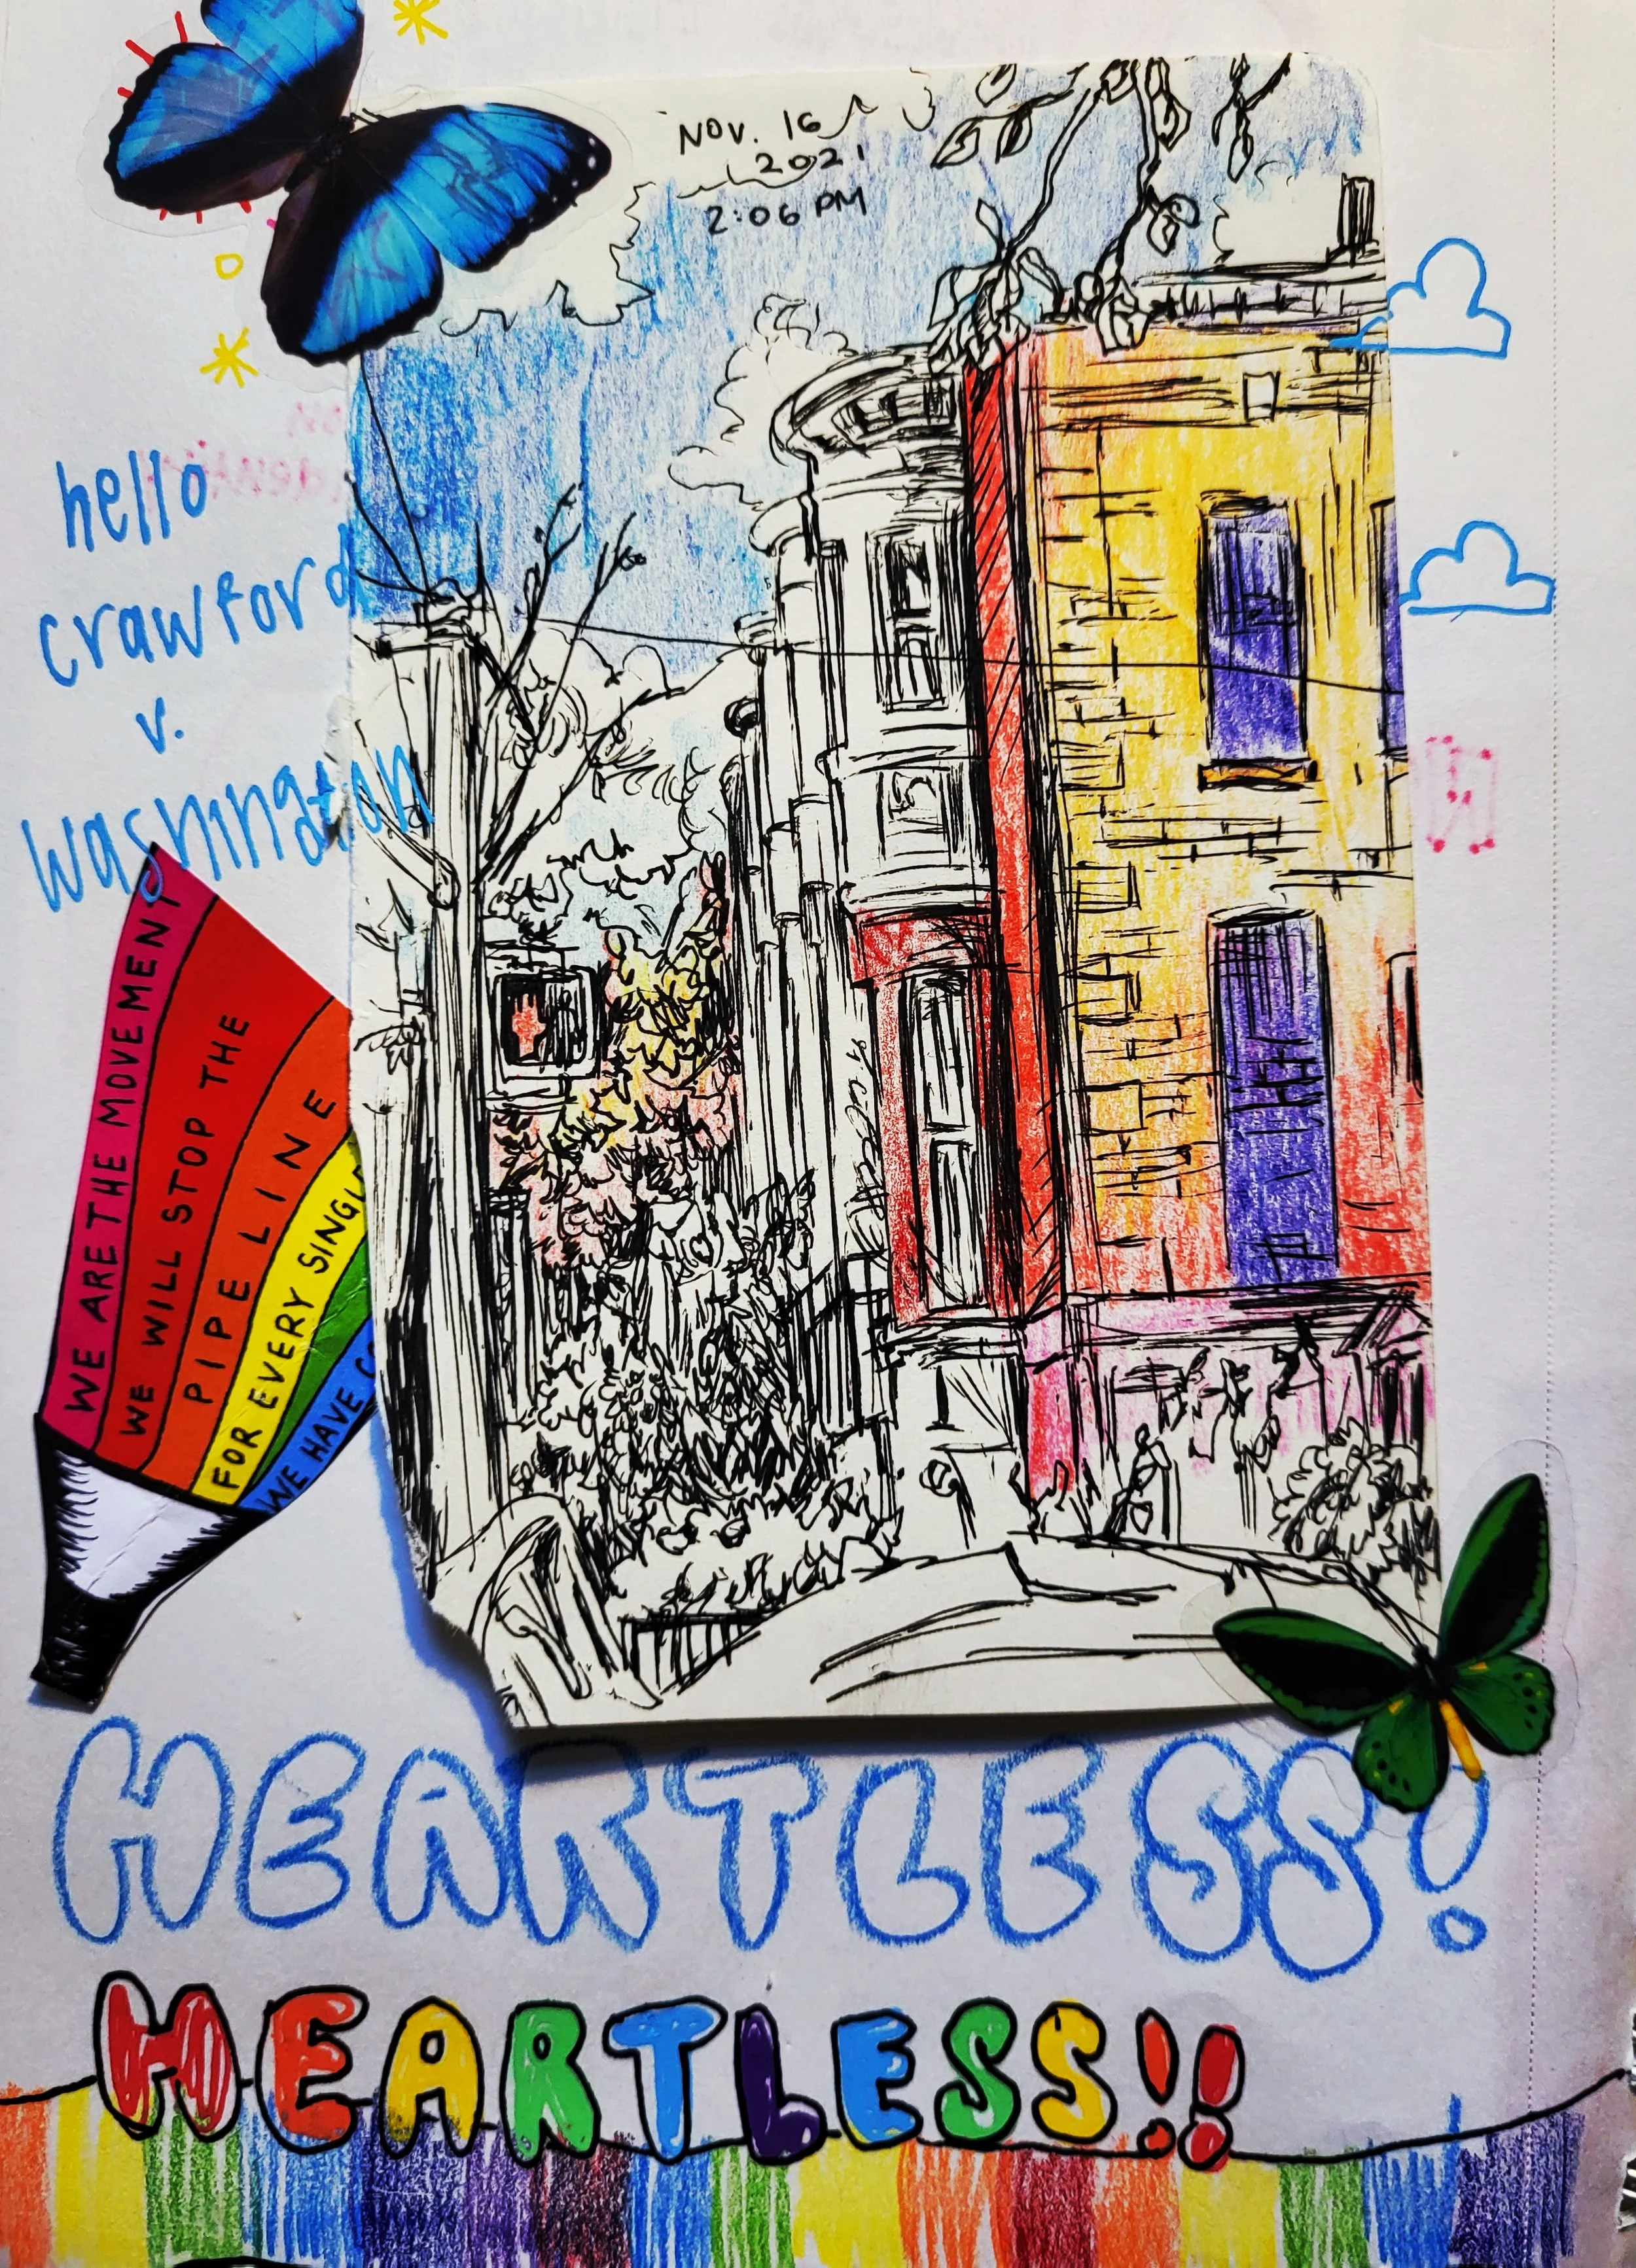 NOV. 16
2021
2:06 PM
hello
crawford
v.
washington
WE ARE THE MOVEMENT
WE WILL STOP THE
PIPELINE
FOR EVERY SINGL
WE HAVE
HEARTLESS!
HEARTLESS!!